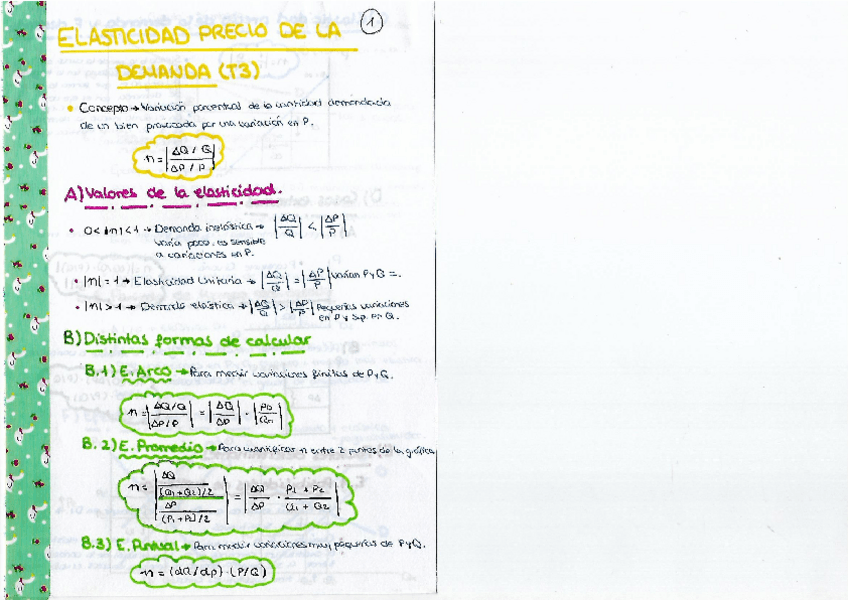 1
ELASTICIDAD PRECIO DE LA
DEMANDA (T3)
• Concepto → Variación porcentual de la cantidad demandada
de un bien provocada por una variación en P.
n = |ΔQ / Q| / |ΔP / P|
A) Valores de la elasticidad.
• 0 < |n| < 1 → Demanda inelástica → |ΔQ/Q| < |ΔP/P|
varía poco, es sensible
a variaciones en P.
• |n| = 1 → Elasticidad Unitaria → |ΔQ/Q| = |ΔP/P| varían P y Q =.
• |n| > 1 → Demanda elástica → |ΔQ/Q| > |ΔP/P| Pequeñas variaciones
en P y Q.
B) Distintas formas de calcular
B.1) E. Arco → Para medir variaciones finitas de P y Q.
n = |ΔQ/Q / ΔP/P| = |ΔQ/ΔP| · |P0/Q0|
B.2) E. Promedio → Para cuantificar n entre 2 puntos de la gráfica
n = |ΔQ/((Q1+Q2)/2) / ΔP/((P1+P2)/2)| = |ΔQ/ΔP · (P1 + P2)/(Q1 + Q2)|
B.3) E. Puntual → Para medir variaciones muy pequeñas de P y Q.
n = (dQ/dP) · (P/Q)